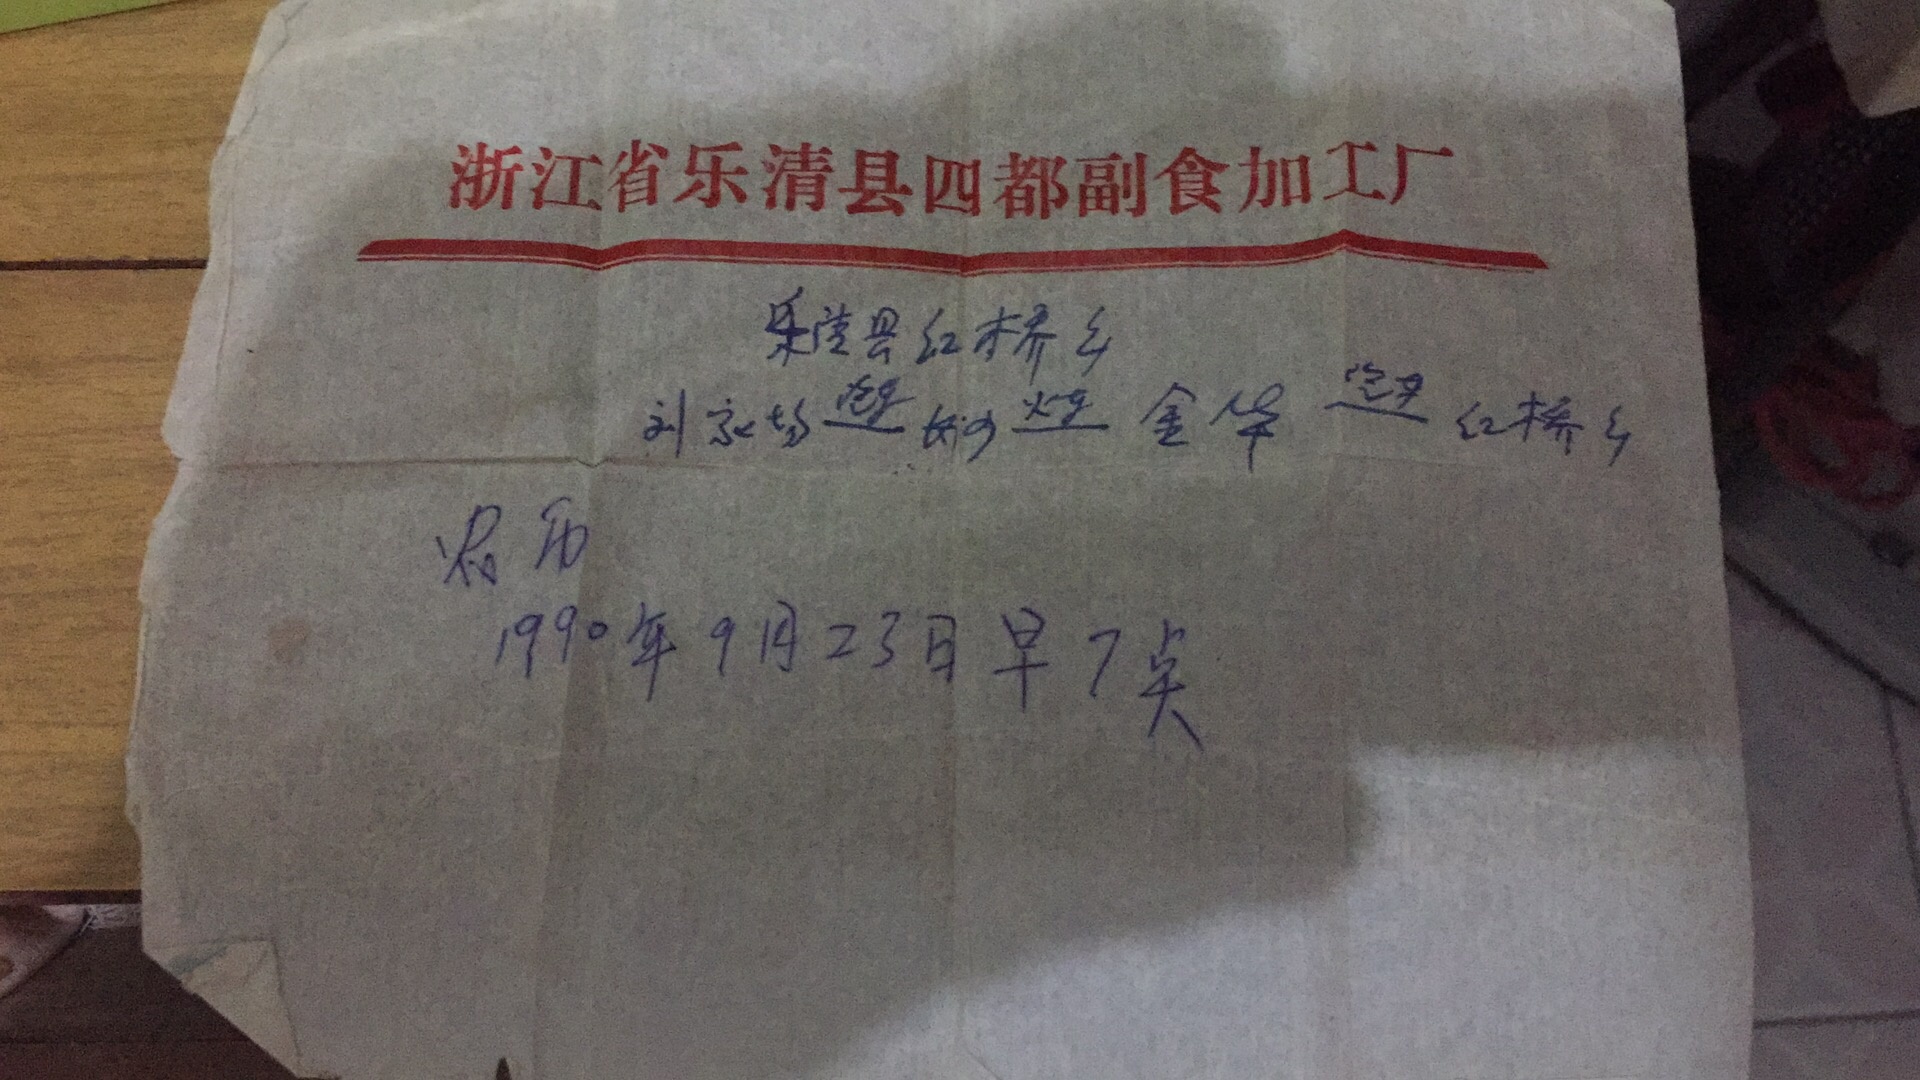 浙江省乐清县四都副食加工厂
乐清县红桥乡
刘家场 汽车 长沙 火车 金华 汽车 红桥乡
农历
1990年9月23日早7点